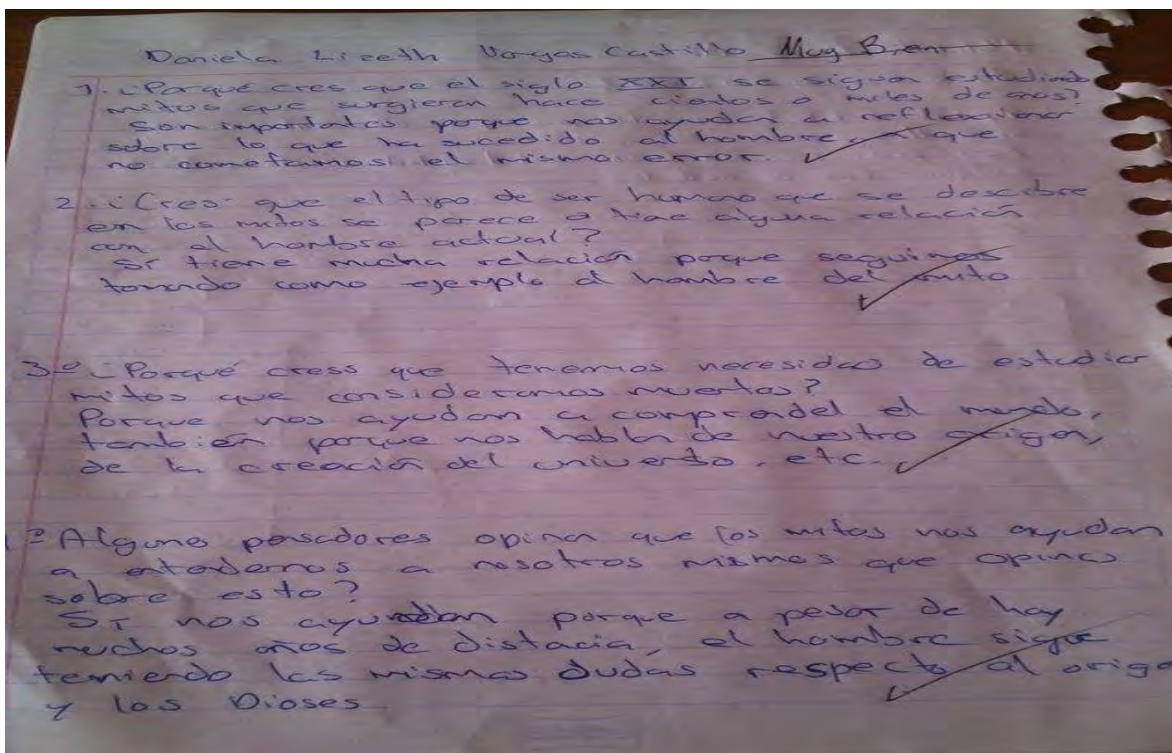 Daniela Lizeth Vargas Castillo Muy Bien
1. ¿Porqué cres que el siglo XXI se siguen estudiando
mitos que surgieren hace cientos o miles de años?
Son importantes porque nos ayudan a reflexionar
sobre lo que ha sucedido al hombre, a que
no cometamos el mismo error.
2. ¿Cres que el tipo de ser humano que se describe
en los mitos se parece o tiene alguna relación
con el hombre actual?
Si tiene mucha relación porque seguimos
tomando como ejemplo al hombre del mito
3º ¿Porqué cress que tenemos necesidad de estudiar
mitos que consideramos muertos?
Porque nos ayudan a comprendel el mundo,
también porque nos habla de nuestro origen,
de la creación del universo, etc.
Alguno pensadores opinan que los mitos nos ayudan
a entendernos a nosotros mismos que opinas
sobre esto?
Si nos ayudan porque a pesar de hay
muchos años de distacia, el hombre sigue
teniendo las mismas dudas respecto al orige
y los Dioses